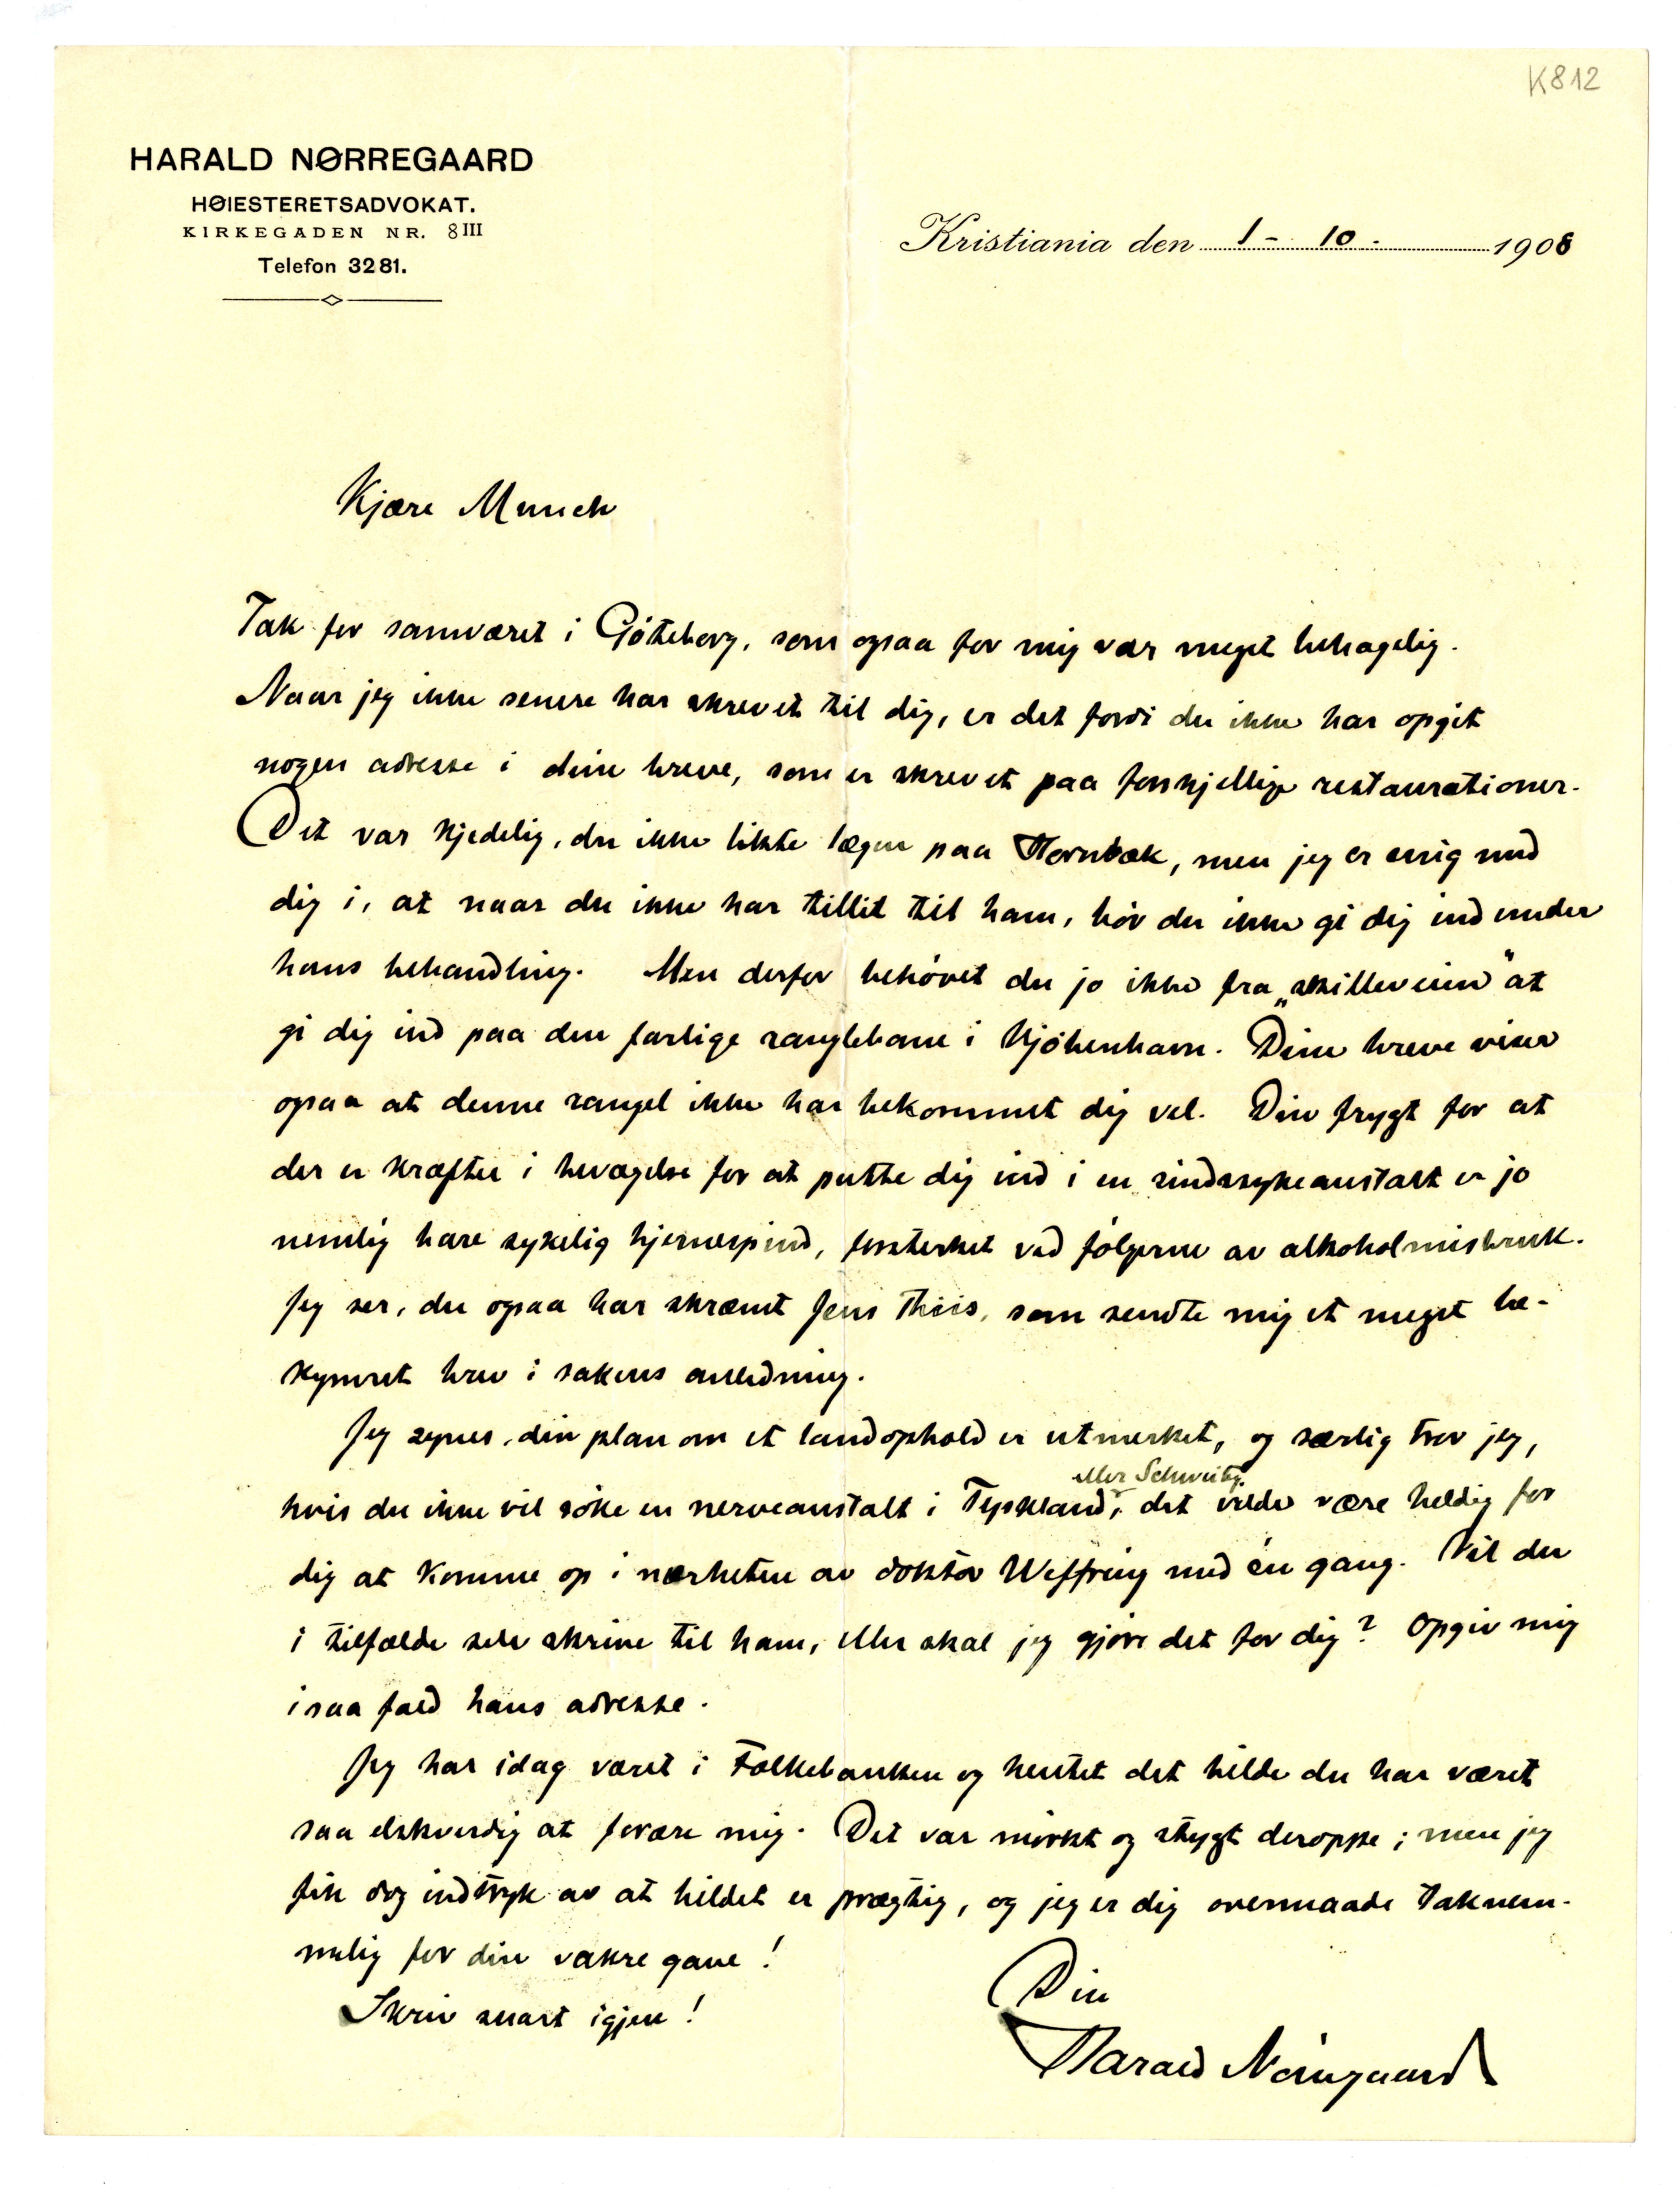 K812
HARALD NØRREGAARD
HØIESTERETSADVOKAT.
KIRKEGADEN NR. 8III
Telefon 3281.
Kristiania den 1 - 10. 1908
Kjære Munch
Tak for samværet i Göteborg, som ogsaa for mig var meget behagelig.
Naar jeg ikke senere har skrevet til dig, er det fordi du ikke har opgit
nogen adresse i dine breve, som er skrevet paa forskjellige restaurationer.
Det var kjedelig, du ikke likte lægen paa Hornbæk, men jeg er enig med
dig i, at naar du ikke har tillit til ham, bör du ikke gi dig ind under
hans behandling. Men derfor behövet du jo ikke fra „skilleveien" at
gi dig ind paa den farlige ranglebane i Kjöbenhavn. Dine breve viser
ogsaa at denne rangel ikke har bekommet dig vel. Din frygt for at
der er kræfter i bevægelse for at putte dig ind i en sindssykeanstalt er jo
nemlig bare sykelig hjernespind, forsterket ved fölgerne av alkoholmisbruk.
Jeg ser, du ogsaa har skræmt Jens Thiis, som sendte mig et meget be-
kymret brev i sakens anledning.
Jeg synes, din plan om et landophold er utmerket, og særlig tror jeg,
eller Schweitz
hvis du ikke vil söke en nerveanstalt i Tyskland, det vilde være heldig for
dig at komme op i nærheten av doktor Weffring med én gang. Vil du
i tilfælde selv skrive til ham, eller skal jeg gjöre det for dig? Opgiv mig
isaafald hans adresse.
Jeg har idag været i Folkebanken og hentet det bilde du har været
saa elskverdig at forære mig. Det var mörkt og stygt deroppe; men jeg
fik dog indtryk av at bildet er prægtig, og jeg er dig overmaade taknem-
melig for din vakre gave!
Skriv snart igjen!
Din
Harald Nörregaard